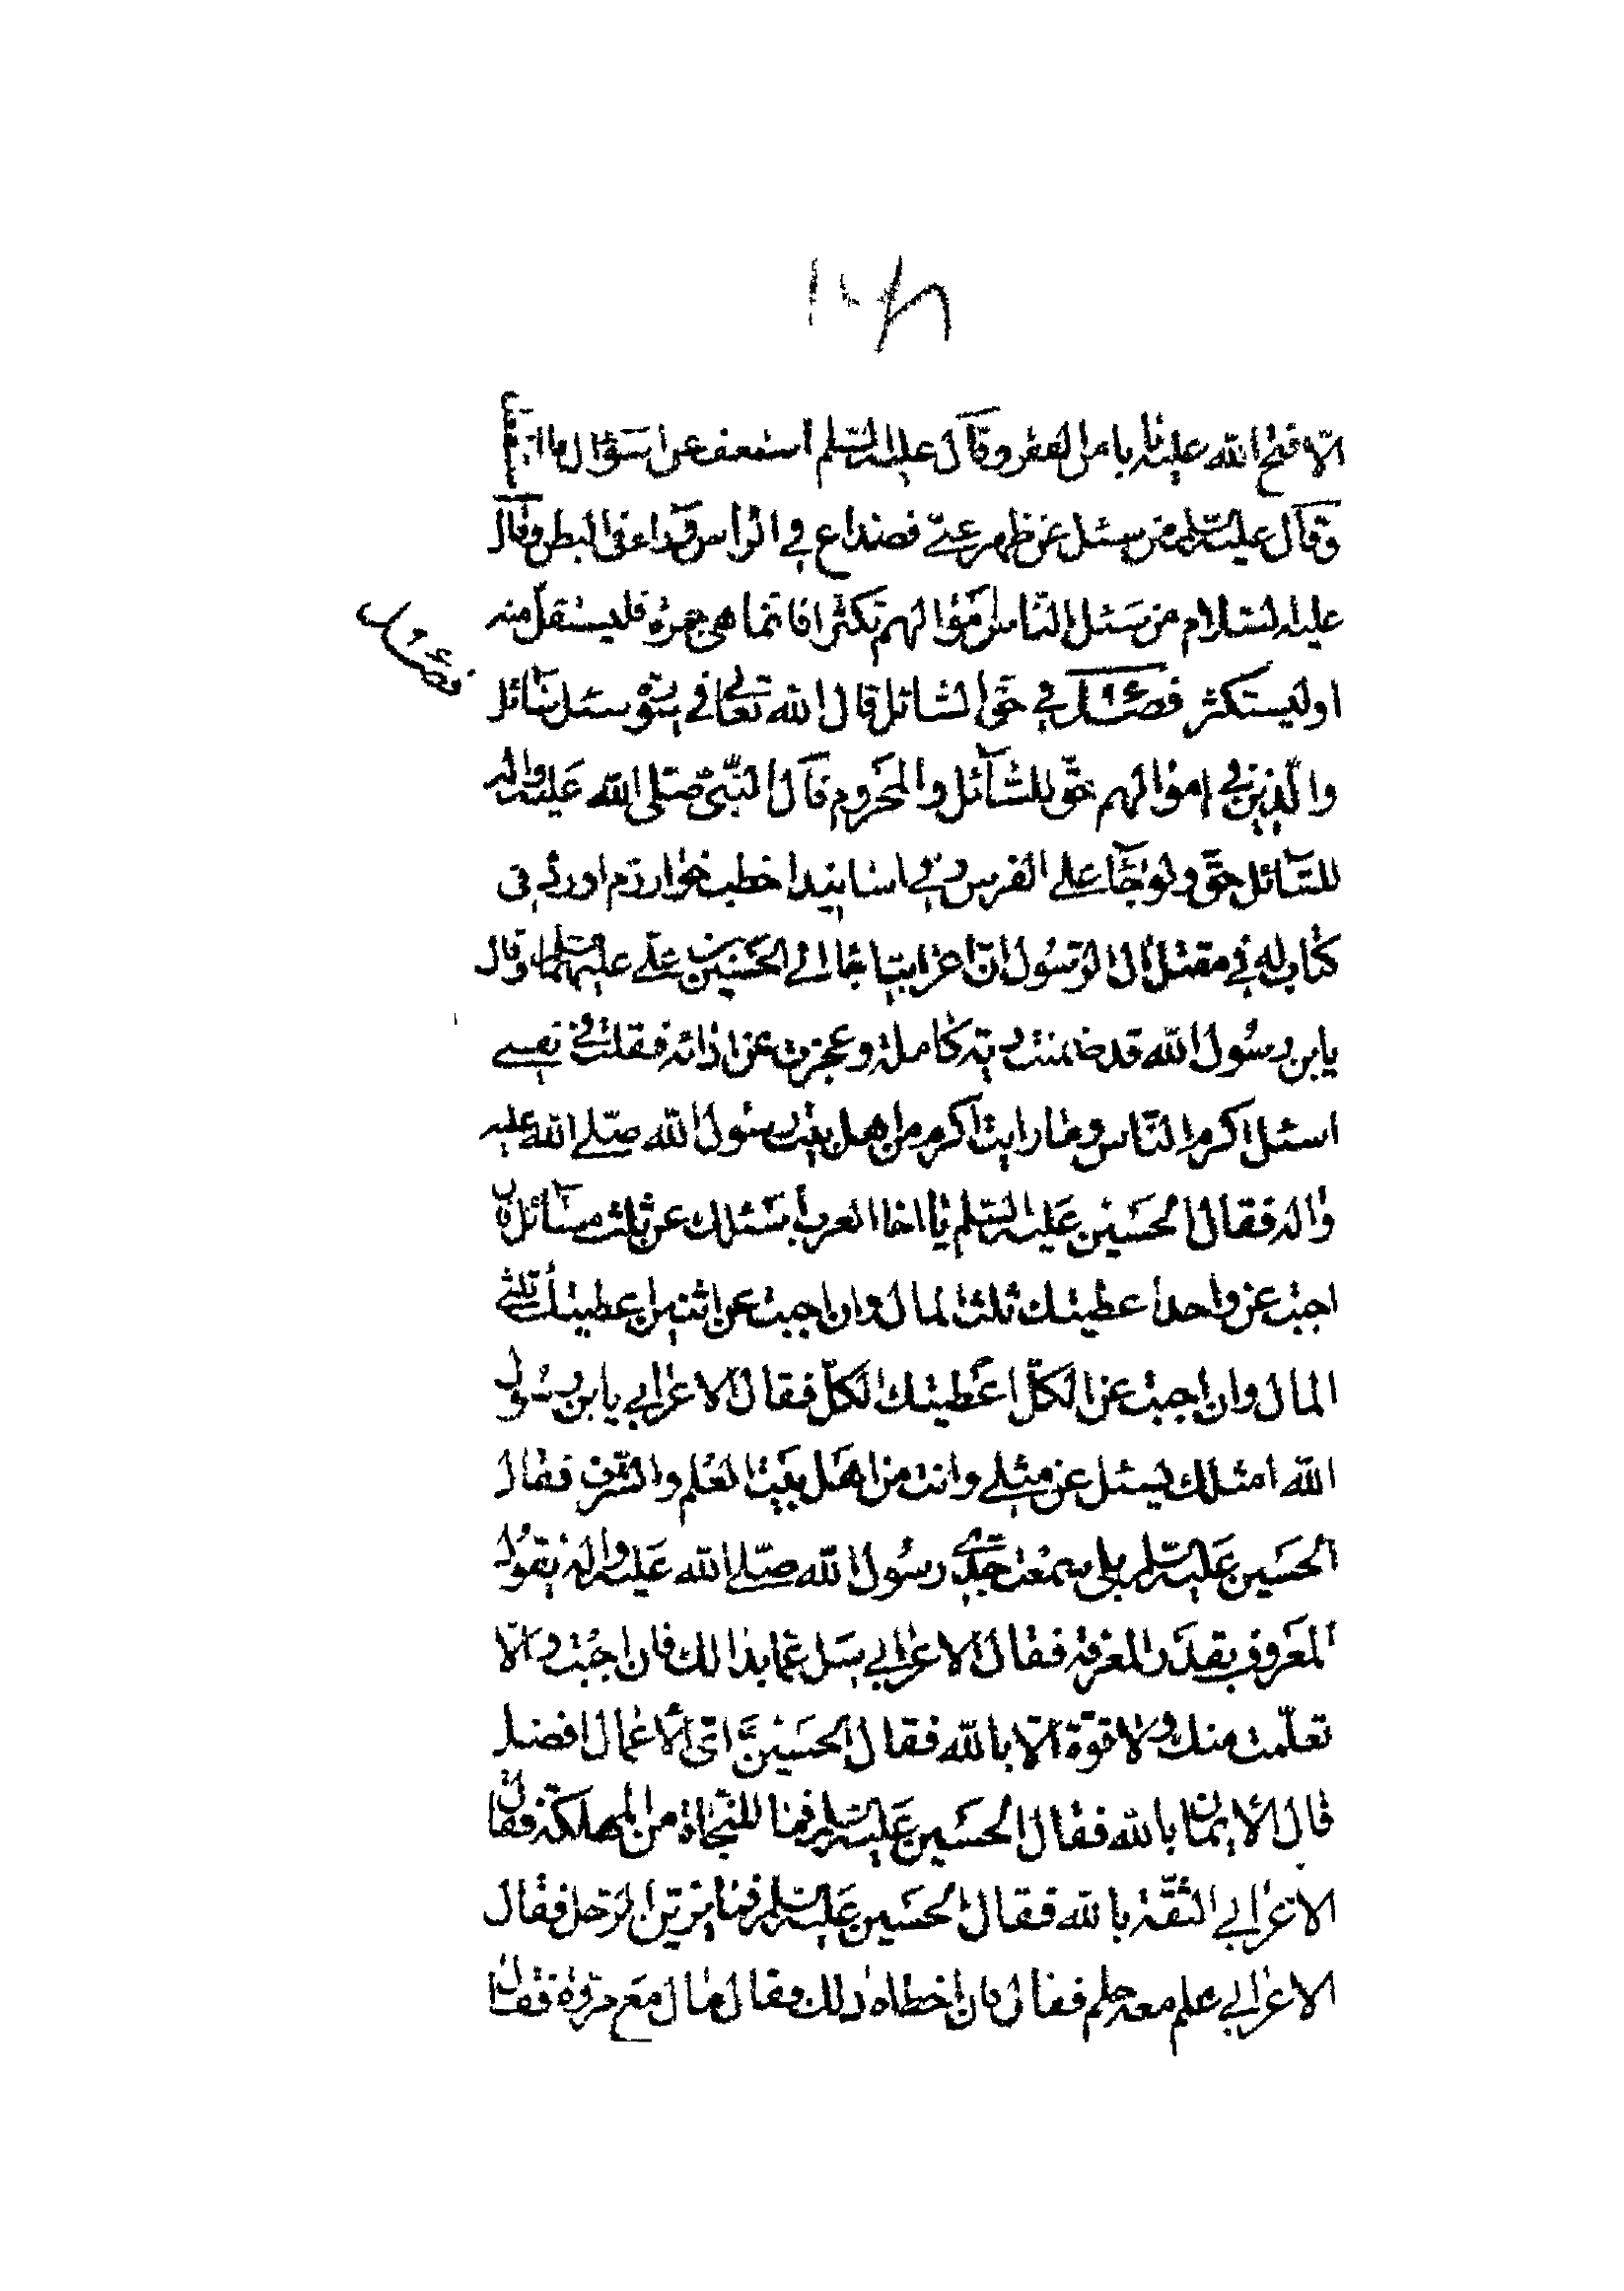 الا فتح الله عليه بابا من الفقر وقال عليه السلم استعفف عن السؤال ما
وقال عليه السلم من سئل عن ظهر غنى فصداع في الراس وداء في البطن وقال
عليه السلام من سئل الناس اموالهم تكثرا فانما هي جمرة فليستقل منه
او ليستكثر فصل في حق السائل قال الله تعالى في سئل سائل
والذين في اموالهم حق للسائل والمحروم قال النبي صلى الله عليه واله
للسائل حق ولو جاء على الفرس وفي اسانيد اخطب خوارزم اورده في
كتاب له في مقتل ال الرسول ان اعرابيا جاء الى الحسين بن علي عليهما السلم وقال
يابن رسول الله قد ضمنت دية كاملة وعجزت عن ادائه فقلت في نفسي
اسئل اكرم الناس وما رايت اكرم من اهل بيت رسول الله صلى الله عليه
واله فقال الحسين عليه السلم يا اخا العرب اسئلك عن ثلث مسائل فان
اجبت عن واحد اعطيتك ثلث المال وان اجبت عن اثنين اعطيتك ثلثي
المال وان اجبت عن الكل اعطيتك الكل فقال الاعرابي يابن رسول
الله امثلك يسئل عن مثلي وانت من اهل بيت العلم والشرف فقال
الحسين عليه السلم بلى سمعت جدي رسول الله صلى الله عليه واله يقول
المعروف بقدر المعرفة فقال الاعرابي سل عما بدالك فان اجبت والا
تعلمت منك ولا قوة الا بالله فقال الحسين ع اي الاعمال افضل
قال الايمان بالله فقال الحسين عليه السلم فما للنجاة من المهلكة فقال
الاعرابي الثقة بالله فقال الحسين عليه السلم فما يزين الرجل فقال
الاعرابي علم معه حلم فقال فان اخطاه ذلك فقال مال معه مروة فقال